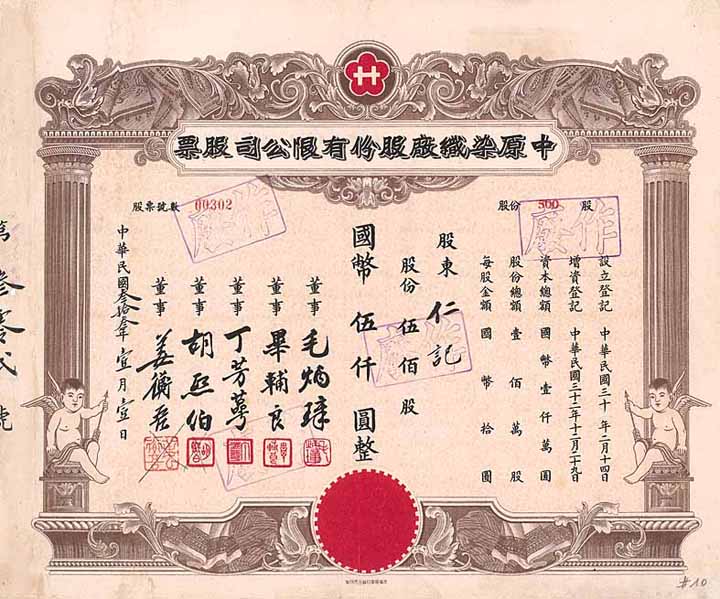 中原染織廠股份有限公司股票
股份 500 股
設立登記 中華民國三十年二月十四日
增資登記 中華民國三十二年十二月二十九日
資本總額 國幣壹仟萬圓
股份總額 壹佰萬股
每股金額 國幣拾圓
股東 仁記
股份 伍佰 股
國幣 伍仟 圓整
董事 毛炳璋
董事 畢輔良
董事 丁芳萼
董事
胡
伯
董事
中華民國叁拾叁年壹月壹日
股票號數 00302
第叁零弍號
作廢
作廢
作廢
#10